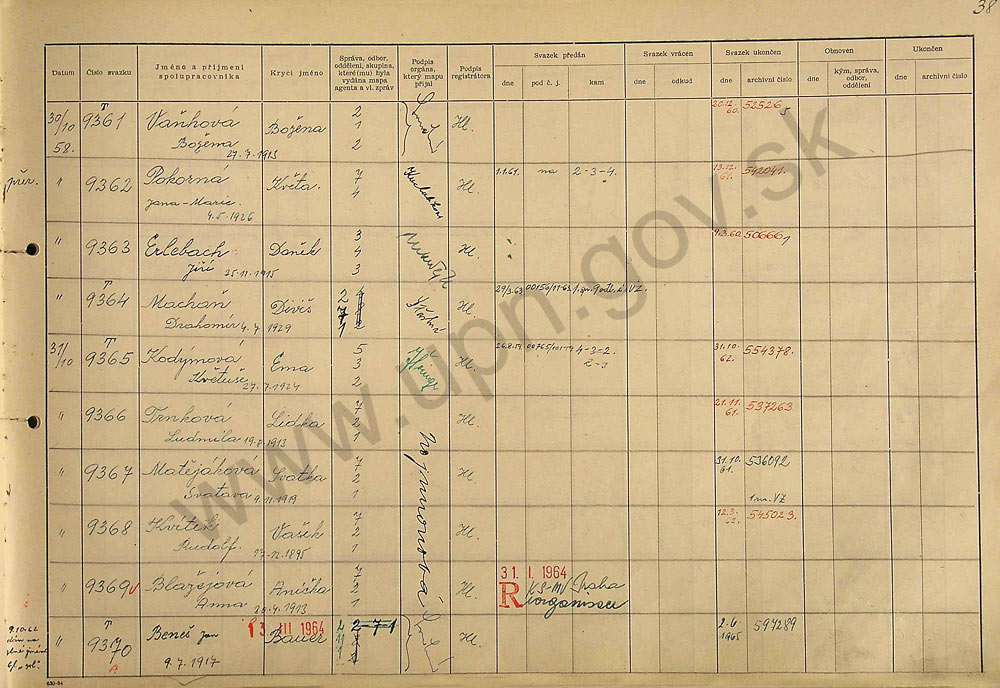 38
Datum
Číslo svazku
Jméno a příjmení spolupracovníka
Krycí jméno
Správa, odbor, oddělení, skupina, které(mu) byla vydána mapa agenta a vl. zpráv
Podpis orgána, který mapu přijal
Podpis registrátora
Svazek předán
dne
pod č. j.
kam
Svazek vrácen
dne
odkud
Svazek ukončen
dne
archivní číslo
Obnoven
dne
kým, správa, odbor, oddělení
Ukončen
dne
archivní číslo
30/10 58. T 9361 Vaňhová Božena 2 1 2 Hl. 20.12. 60. 52526
Božena 27.7.1915
" 9362 Pokorná Květa. 7 7 4 Hl. 1.1.61. na 2-3-4. 13.12. 61. 542041.
Jana-Marie. 4.5.1926
" 9363 Erlebach Daněk 3 4 3 Hl. 9.3.60. 50666
Jiří 25.11.1915
" T 9364 Machaň Diviš Hl. 29/3.63
Drahomír 4.7.1929
31/10 T 9365 Kodýmová Ema 5 3 2 Hl. 26.8.59. 4-3=2. 2-3 31.10. 62. 554378.
Květuše 27.7.1924
" 9366 Trnková Lidka 7 2 1 Hl. 21.11. 61. 537263
Ludmila 19.8.1913
" 9367 Matějáková Svatka 7 2 1 Hl. 31.10. 61. 536092
Svatava 9.11.1919 1 m. VZ
" 9368 Kvítek Vašík 7 2 1 Hl. 12.3. 62. 545023.
Rudolf. 17.12.1895
" 9369 v Blažejová Anička 7 2 1 Hl. 31. I. 1964 KS-MV Praha
Anna 26.4.1913 Reorganisace
" T 9370 Beneš Jan 13 III 1964 Bauer 2-7-1 Hl. 2.6 1965 597289
9.7.1917
A
9.10.62
630-54
www.upn.gov.sk